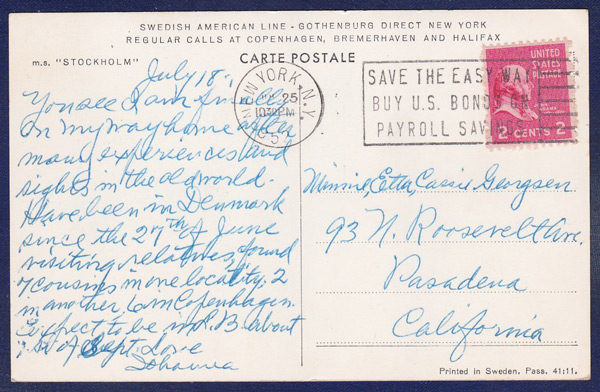 SWEDISH AMERICAN LINE - GOTHENBURG DIRECT NEW YORK
REGULAR CALLS AT COPENHAGEN, BREMERHAVEN AND HALIFAX
m.s. "STOCKHOLM"
CARTE POSTALE
July 18.
You see I am finally
on my way home after
many experiences and
sights in the old world.
Have been in Denmark
since the 27th of June
visiting relatives, found
7 cousins in one locality, 2
in another, 6 in Copenhagen.
Expect to be in R.B. about
1st of Sept. Love
Johanna
NEW YORK, N.Y.
25
PM
SAVE THE EASY WAY
BUY U.S. BONDS ON
PAYROLL SAVINGS
UNITED
STATES
POSTAGE
2 CENTS 2
Minnie, Etta, Cassie Georgsen
93 N. Roosevelt Ave.
Pasadena
California
Printed in Sweden. Pass. 41:11.